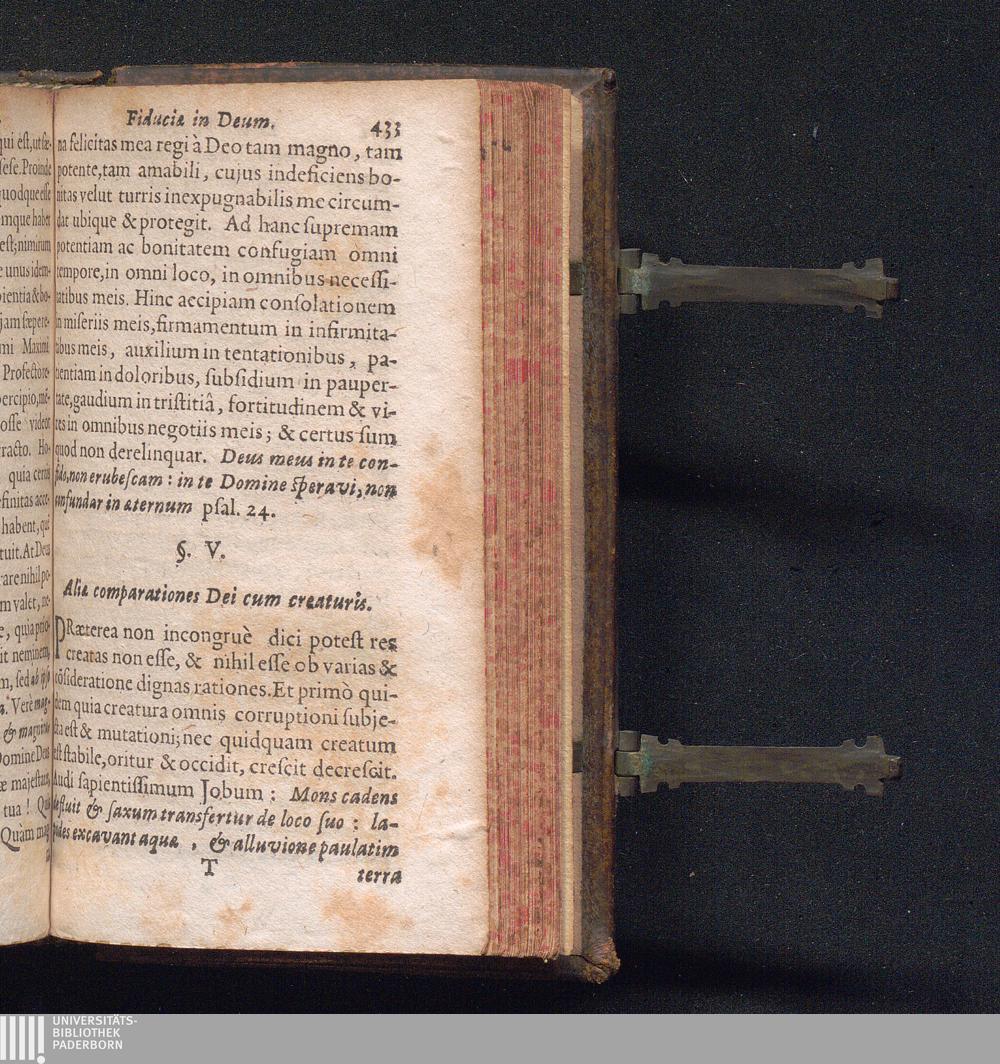 Fiduciæ in Deum. 433
na felicitas mea regi à Deo tam magno, tam
potente, tam amabili, cujus indeficiens bo-
nitas velut turris inexpugnabilis me circum-
dat ubique & protegit. Ad hanc ſupremam
potentiam ac bonitatem confugiam omni
tempore, in omni loco, in omnibus neceſſi-
tatibus meis. Hinc accipiam conſolationem
in miſeriis meis, firmamentum in infirmita-
tibus meis, auxilium in tentationibus, pa-
tientiam in doloribus, ſubſidium in pauper-
tate, gaudium in triſtitiâ, fortitudinem & vi-
res in omnibus negotiis meis; & certus ſum
quod non derelinquar. Deus meus in te con-
fido, non erubeſcam: in te Domine ſperavi, non
confundar in æternum pſal. 24.
§. V.
Aliæ comparationes Dei cum creaturis.
PRæterea non incongruè dici poteſt res
creatas non eſſe, & nihil eſſe ob varias &
cõſideratione dignas rationes. Et primò qui-
dem quia creatura omnis corruptioni ſubje-
cta eſt & mutationi; nec quidquam creatum
eſt ſtabile, oritur & occidit, creſcit decreſcit.
Audi ſapientiſſimum Jobum: Mons cadens
defluit & ſaxum transfertur de loco ſuo: la-
pides excavant aquæ, & alluvione paulatim
T terra
qui eſt, ut ſæ-
ſeſe. Proinde
quodque eſſe
mque habet
eſt; nimirum
e unus idem-
pientia & bo-
jam ſæpere-
mi Maximi
Profectò re-
percipio, me-
oſſe videor
racto. Ho-
quia certus
efinitas acce-
habent, qui
tuit. At Deus
rare nihil po-
m valet, ne-
e, quia ptio-
it neminem,
m, ſed ab ipſo
a. Verè mag-
& magnitudi
Domine Deus
æ majeſtatis
tua! Quis
Quàm mag
UNIVERSITÄTS-
BIBLIOTHEK
PADERBORN